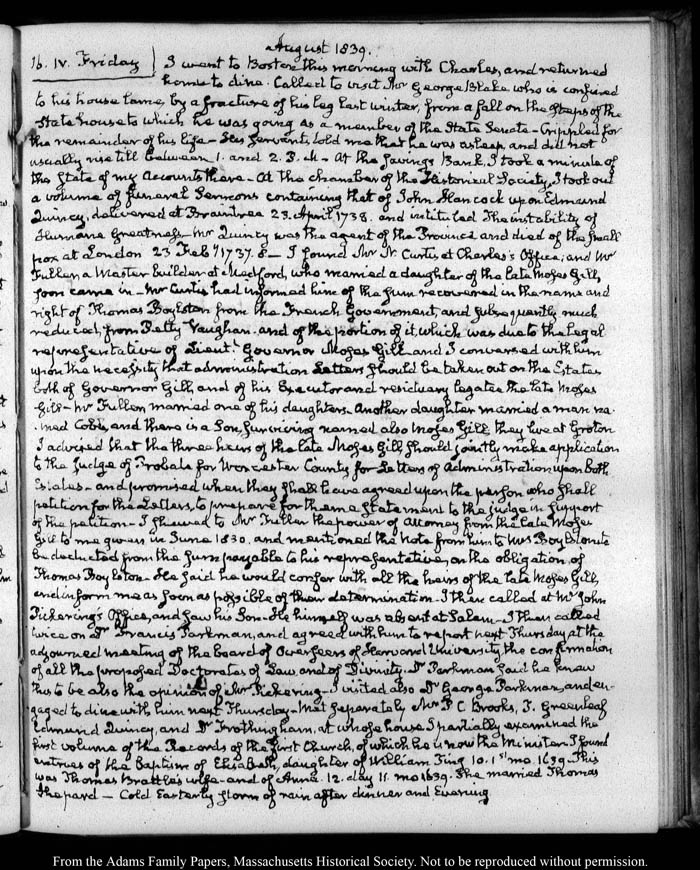 August 1839.
16. IV. Friday
I went to Boston this morning with Charles, and returned
home to dine. Called to visit Mr George Blake who is confined
to his house lame, by a fracture of his leg last winter, from a fall on the steps of the
State house to which he was going as a member of the State Senate - Crippled for
the remainder of his life - His Servants told me that he was asleep, and did not
usually rise till between 1. and 2. P.M - At the Savings Bank, I took a minute of
the State of my Accounts there - At the chamber of the Historical Society, I took out
a volume of funeral Sermons containing that of John Hancock upon Edmund
Quincy, delivered at Braintree 23. April 1738. and intituled The instability of
Humane Greatness - Mr Quincy was the agent of the Province and died of the small
pox at London 23 Feby 1737.8 - I found Mr N. Curtis at Charles's Office; and Mr
Fuller, a Master builder at Medford, who married a daughter of the late Moses Gill,
soon came in - Mr Curtis had informed him of the sum recovered in the name and
right of Thomas Boylston from the French Government, and subsequently much
reduced, from Petty Vaughan. and of the portion of it, which was due to the legal
representative of Lieut. Governor Moses Gill - and I conversed with him
upon the necessity that administration Letters should be taken out on the Estates
both of Governor Gill, and of his Executor and residuary legatee the late Moses
Gill - Mr Fuller married one of his daughters. Another daughter married a man na-
med Cobb, and there is a Son, surviving named also Moses Gill, they live at Groton
I advised that the three heirs of the late Moses Gill, should jointly make application
to the Judge of Probate for Worcester County for Letters of Administration upon both
Estates - and promised when they shall have agreed upon the person who shall
petition for the Letters, to prepare for them a Statement to the judge in support
of the petition - I shewed to Mr Fuller the power of Attorney from the late Moses
Gill to me given in June 1830. and mentioned the Note from him to Mrs Boylston to
be deducted from the sum payable to his representative, on the obligation of
Thomas Boylston - He said he would confer with all the heirs of the late Moses Gill,
and inform me as soon as possible of their determination - I then called at Mr John
Pickering's Office, and saw his Son - He himself was absent at Salem - I then called
twice on Dr Francis Parkman, and agreed with him to report next Thursday at the
adjourned meeting of the board of Overseers of Harvard University the confirmation
of all the proposed Doctorates of Law, and of Divinity - Dr Parkman said he knew
this to be also the opinion of Mr Pickering - I visited also Dr George Parkman, and en-
gaged to dine with him next Thursday - Met separately Mr P C Brooks, J. Greenleaf
Edmund Quincy, and Dr Frothingham, at whose house I partially examined the
first volume of the Records of the first Church, of which he is now the Minister. I found
entries of the Baptism of Elisabeth, daughter of William Ting 10. 1st mo. 1639. This
was Thomas Brattle's wife - and of Anna. 12. day 11. mo 1639. She married Thomas
Shepard - Cold Easterly storm of rain after dinner and Evening
From the Adams Family Papers, Massachusetts Historical Society. Not to be reproduced without permission.